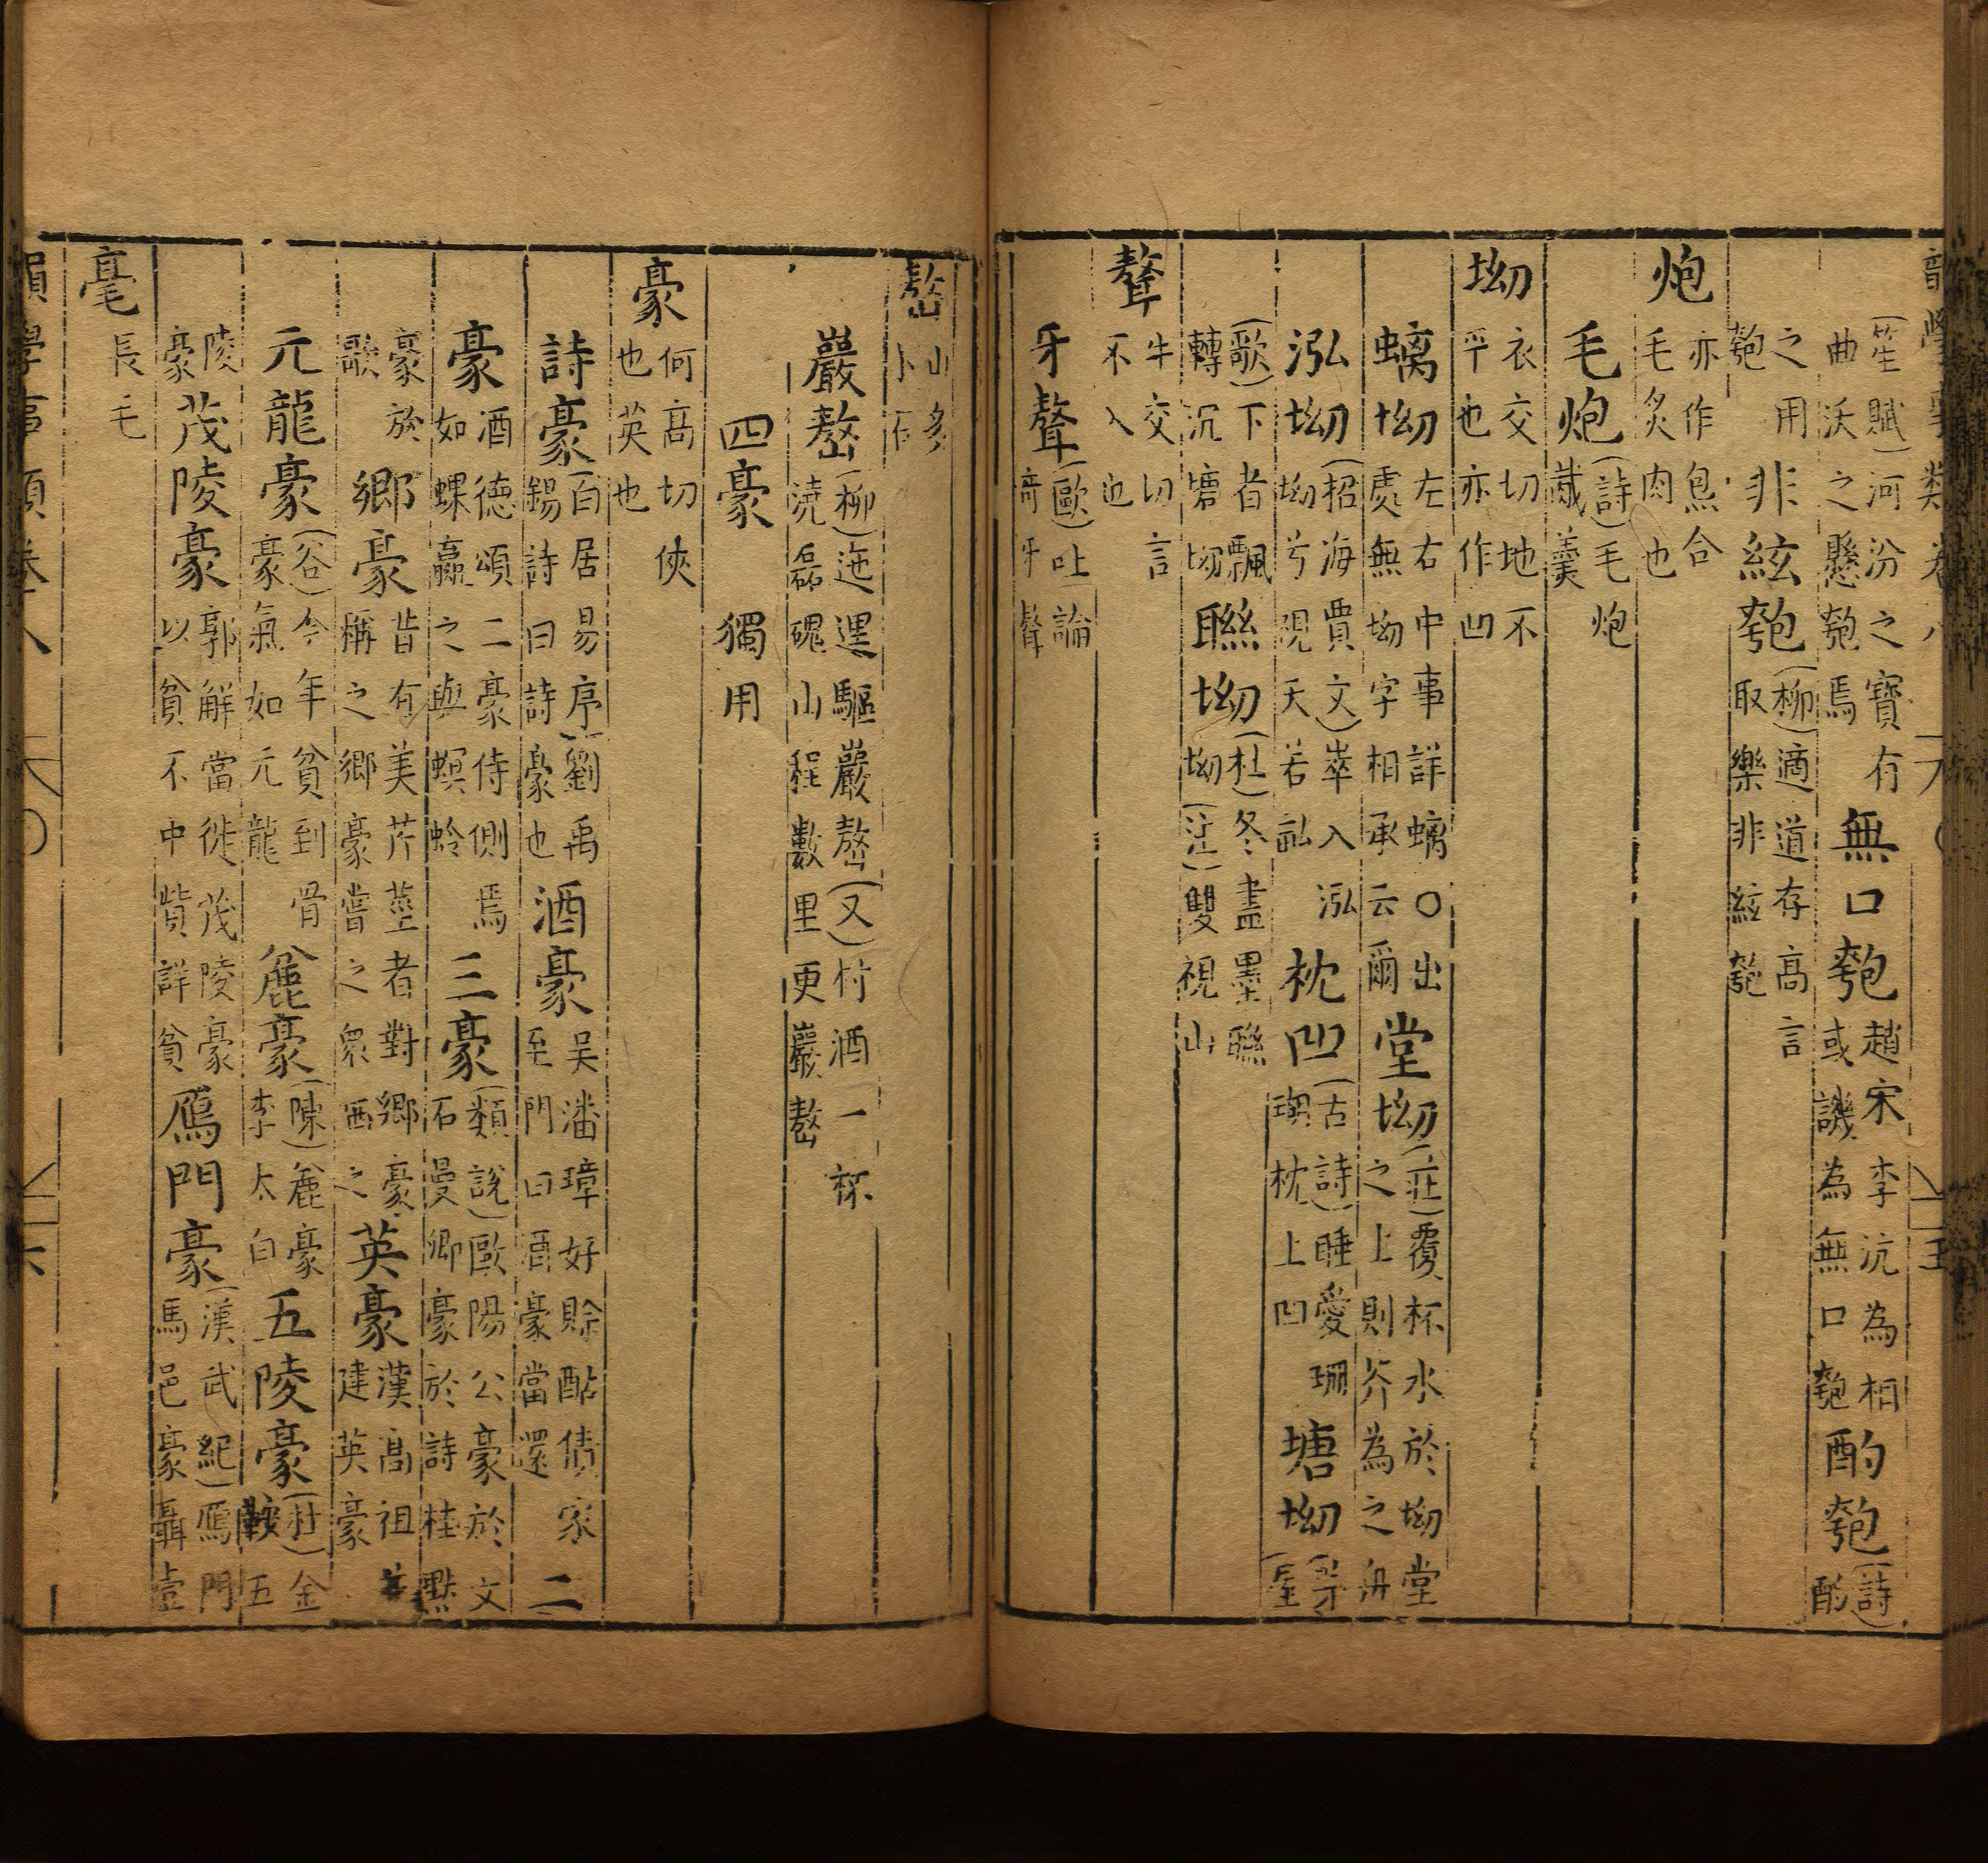 笙賦河汾之寶有
曲沃之懸匏焉
無口匏
趙宋李沆為相
或譏為無口匏
酌匏
詩
酌
之用
匏
非絃匏
柳適道存高言
取樂非絃匏
炮
亦作炰合
毛炙肉也
毛炮
詩毛炮
胾羹
坳
衣交切地不
平也亦作凹
螭坳
左右中事詳螭○出
處無坳字相承云爾
堂坳
莊覆杯水於坳堂
之上則芥為之舟
泓坳
招海賈文崒入泓
坳兮視天若訟
枕凹
古詩睡愛珊
瑚枕上凹
塘坳
歌下者飄
轉沉塘坳
聯坳
杜冬盡墨聯
坳注雙視山
聱
牛交切言
不入也
牙聱
歐吐論
牙聱
嶅
山多
小石
巖嶅
柳迤邐驅巖嶅又村酒一杯
澆磊磈山程數里更巖嶅
四豪 獨用
豪
何高切俠
也英也
詩豪
白居易序劉禹
錫詩曰詩豪也
酒豪
吳潘璋好賒酤債家
至門曰酒豪當還
二
豪
酒德頌二豪侍側焉
如蜾蠃之與螟蛉
三豪
類說歐陽公豪於文
石曼卿豪於詩杜默
豪於
歌
鄉豪
昔有美芹莖者對鄉豪
稱之鄉豪嘗之眾哂之
英豪
漢高祖
建英豪
元龍豪
谷今年貧到骨
豪氣如元龍
麄豪
陳麄豪
李太白
五陵豪
杜金
鞍五
陵
豪
茂陵豪
郭解當徙茂陵豪
以貧不中貲詳貧
鴈門豪
漢武紀鴈門
馬邑豪聶壹
毫
長毛